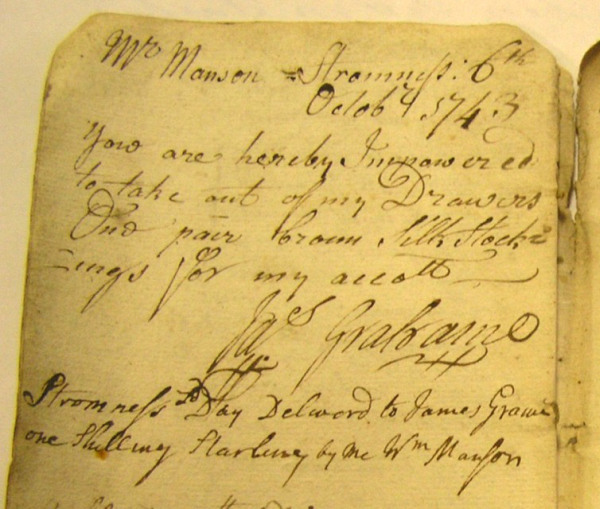 Mr Manson = Stromness: 6th
Octobr 1743
Yow are hereby Impowered
to take out of my Drawers
One pair broun Silk Stock=
=ings for my accott
Jas Grahame
Stromness Day Delverd to James Grame
one Shilling Starling by Me Wm Manson